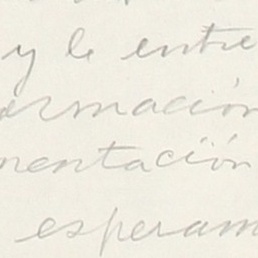 y le entre
ormación
mentación
esperam